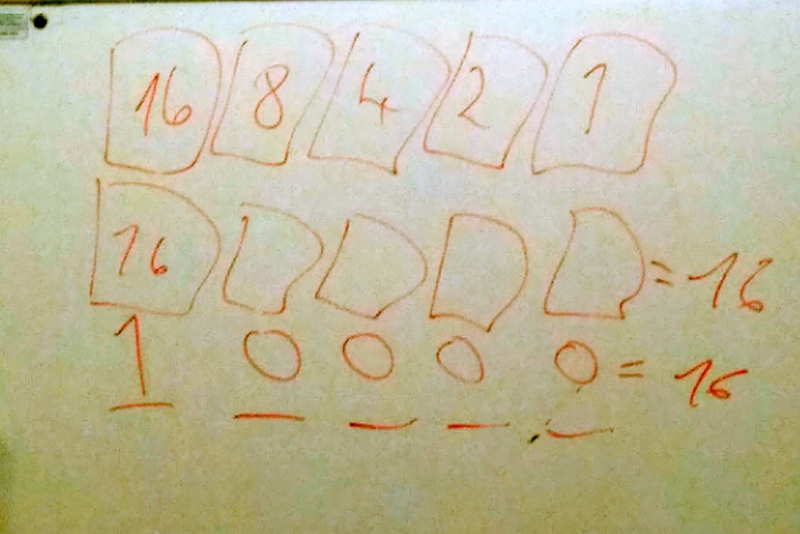 16 8 4 2 1
16 = 16
1 0 0 0 0 = 16